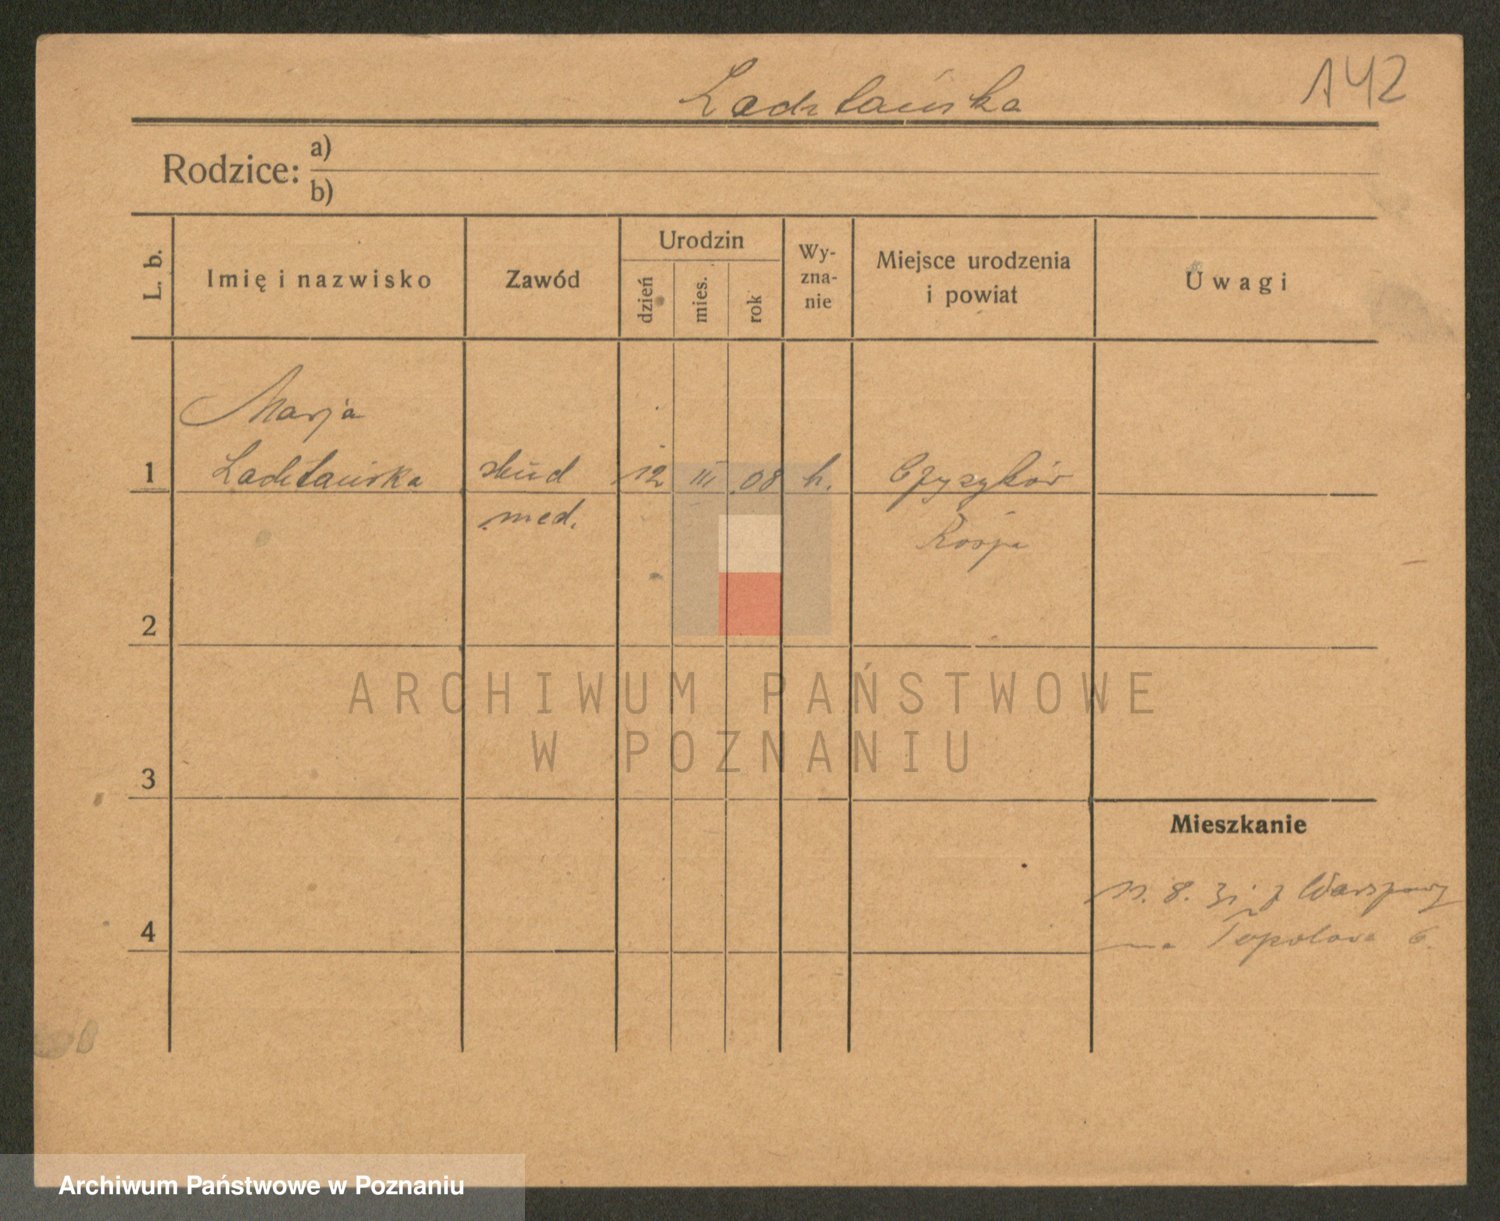 142
Rodzice: a)
b)
L. b.
Imię i nazwisko
Zawód
Urodzin
dzień
mies.
rok
Wy-
zna-
nie
Miejsce urodzenia
i powiat
Uwagi
Marja
1
stud
12
III
08
med.
Rosja
2
3
4
Mieszkanie
11. 8. 31 z Warszawy
na Topolowa 6.
ARCHIWUM PAŃSTWOWE
W POZNANIU
Archiwum Państwowe w Poznaniu